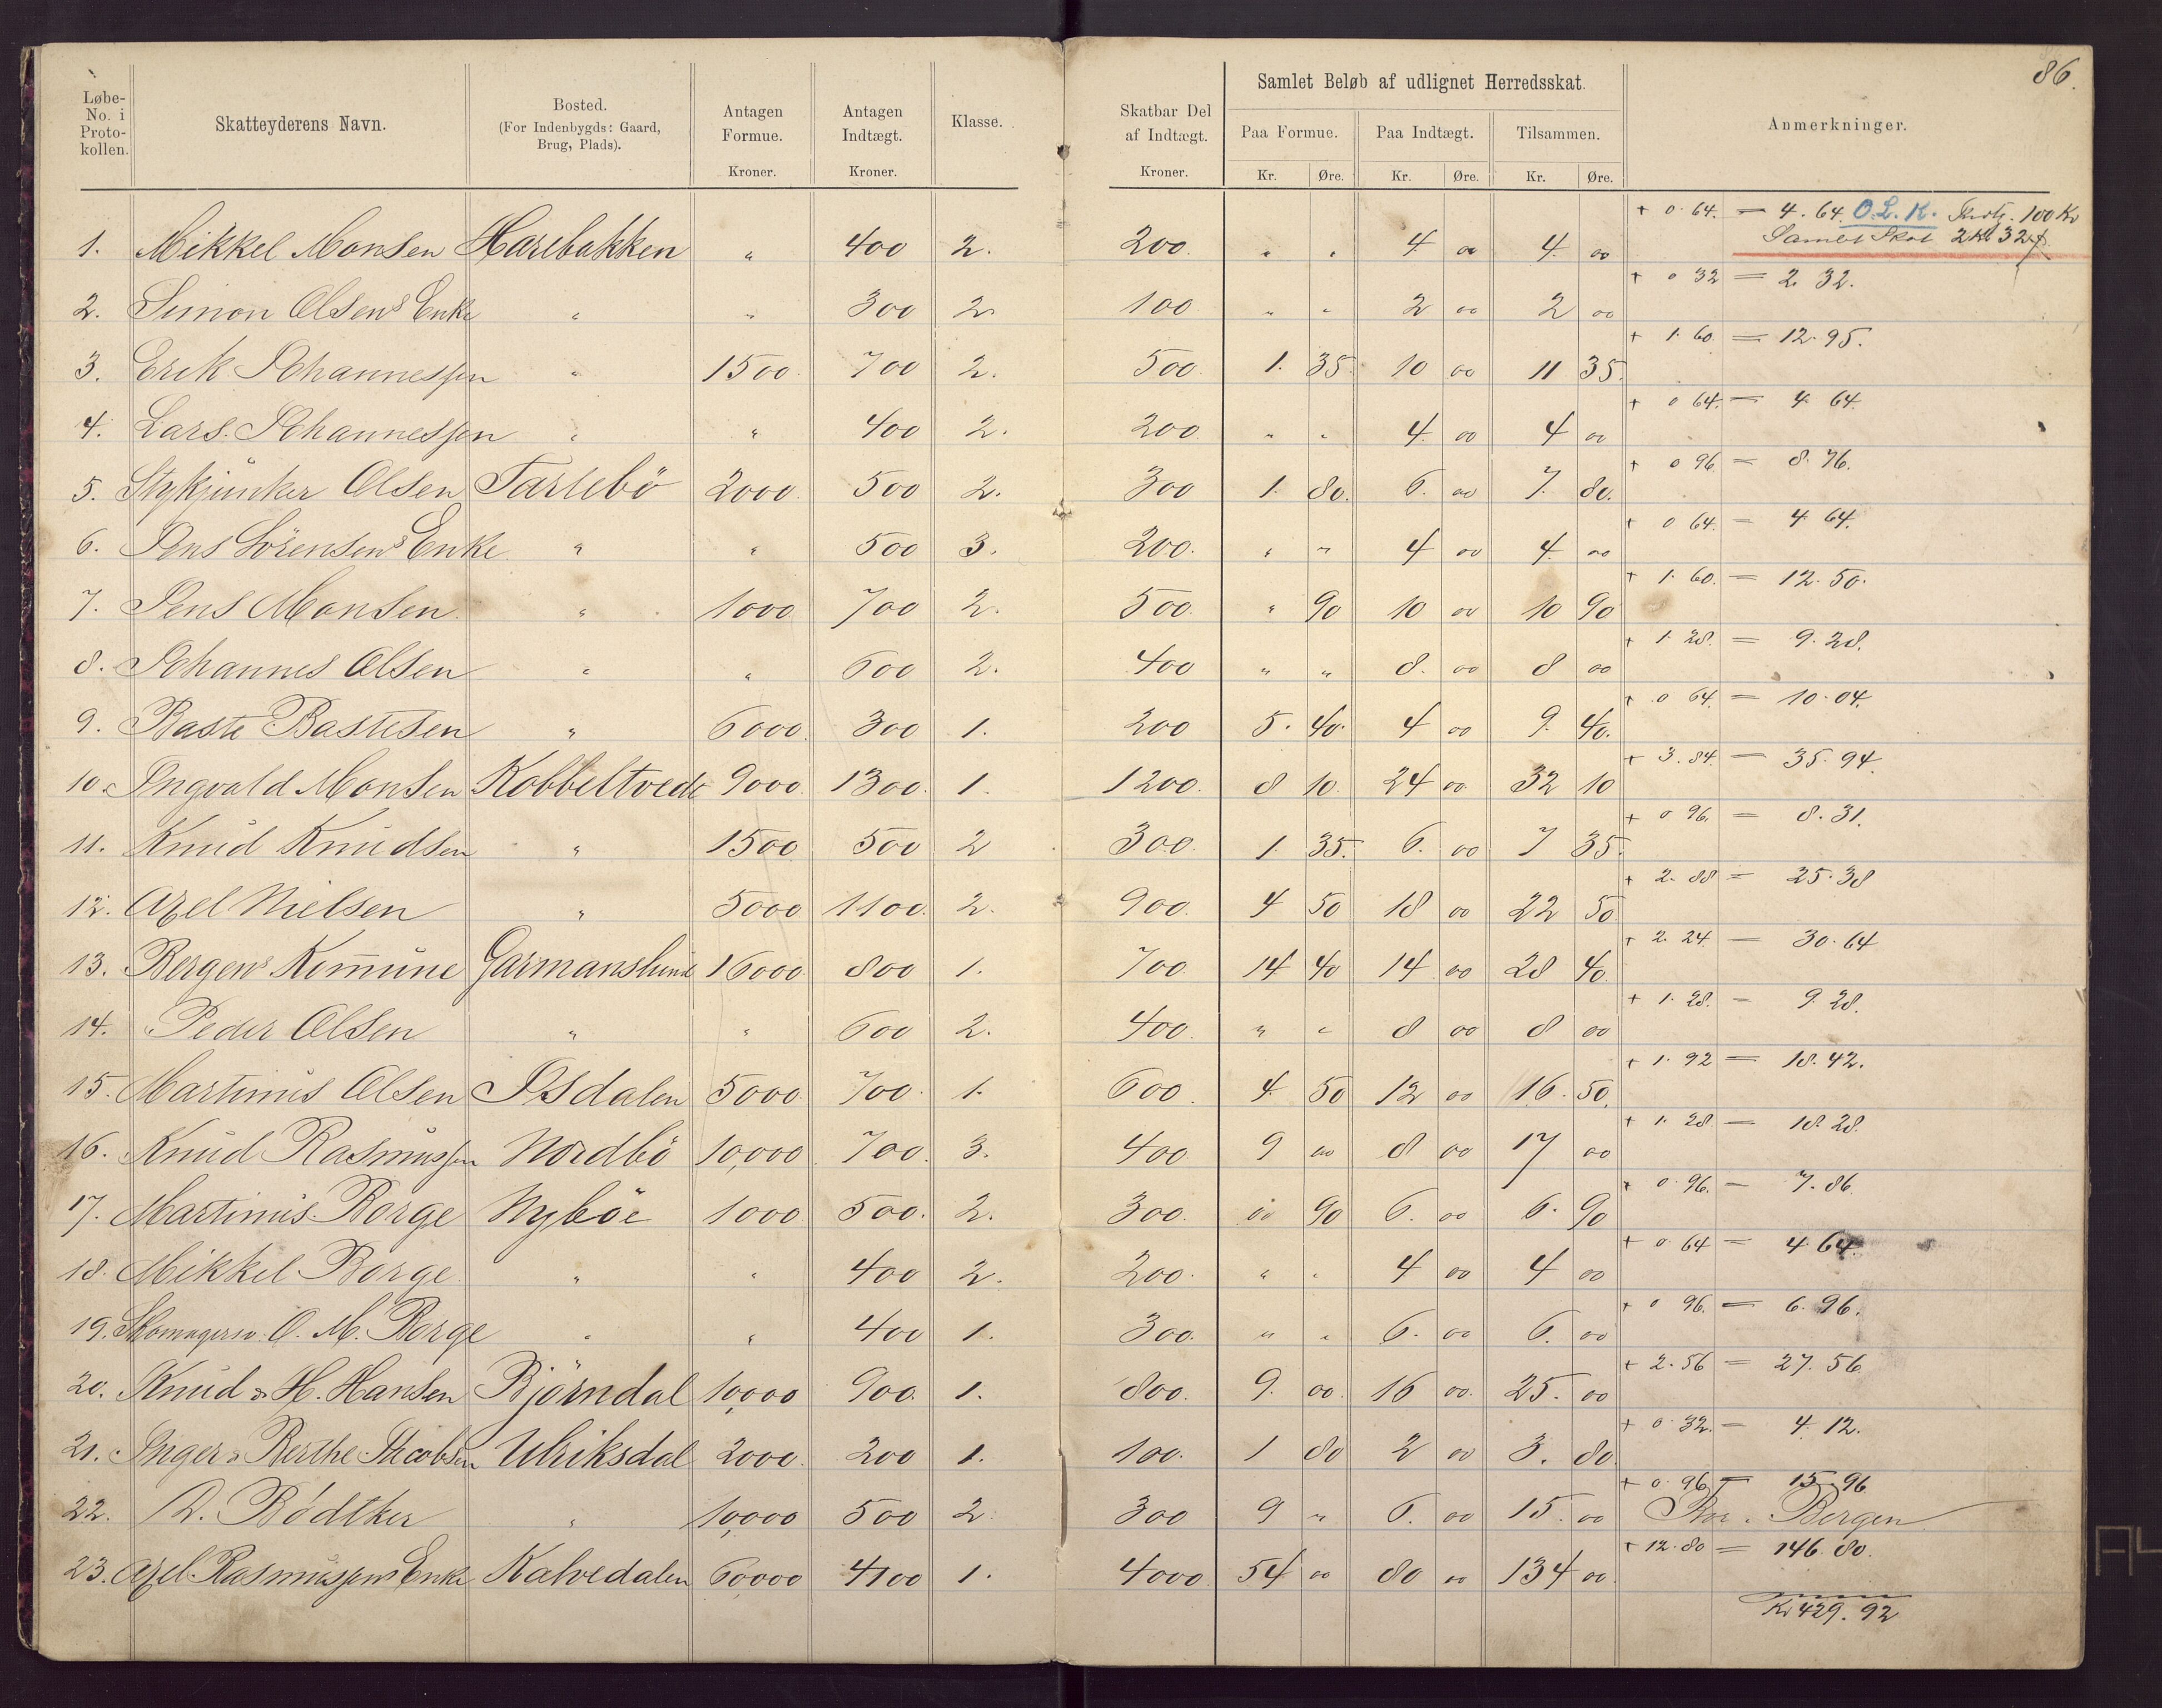 86.
Løbe-No. i Proto-kollen. Skatteyderens Navn. Bosted. (For Indenbygds: Gaard, Brug, Plads). Antagen Formue. Kroner. Antagen Indtægt. Kroner. Klasse. Skatbar Del af Indtægt. Kroner. Samlet Beløb af udlignet Herredsskat. Paa Formue. Kr. Øre. Paa Indtægt. Kr. Øre. Tilsammen. Kr. Øre. Anmerkninger.
+ 0.64. = 4.64. O.L.K. 100 Kr
Samlet Skat 2 Kr 32
1. Mikkel Monsen Harebakken " 400 2. 200. " " 4 00 4 00
+ 0 32 = 2 32.
2. Simon Olsens Enke " " 300 2. 100 " " 2 00 2 00
+ 1.60. = 12.95.
3. Erik Johannessen " 1500. 700 2. 500. 1. 35. 10 00 11 35.
+ 0 64. = 4 64.
4. Lars Johannessen " " 400 2. 200 " " 4. 00 4 00
+ 0 96 = 8.76.
5. Stykjunker Olsen Tarlebö 2000. 500 2. 300 1. 80. 6. 00 7. 80.
+ 0 64. = 4 64.
6. Jens Sörensens Enke " " 500 3. 200. " " 4 00 4. 00
+ 1.60. = 12.50.
7. Jens Monsen " 1000 700 2. 500. " 90 10 00 10 90
+ 1.28. = 9.28.
8. Johannes Olsen " " 600 2. 400 " " 8. 00 8 00
+ 0 64. = 10.04.
9. Baste Bastesen " 6000. 300 1. 200 5. 40. 4 00 9. 40.
+ 3.84. = 35.94.
10. Ingvald Monsen Kobbeltvedt 9000. 1300. 1. 1200. 8 10. 24 00 32 10
+ 0 96. = 8.31.
11. Knud Knudsen " 1500 500 2 300. 1. 35. 6. 00 7 35.
+ 2.88 = 25.38
12. Axel Nielsen " 5000 1100. 2. 900. 4 50 18 00 22 50
+ 2.24. = 30.64
13. Bergens Kommune Garmanslund 16000 800 1. 700 14 40 14 00 28 40.
+ 1.28. = 9.28.
14. Peder Olsen " " 600 2. 400. " " 8 00 8 00
+ 1.92 = 18.42.
15. Martinus Olsen Isdalen 5000 700. 1. 600. 4. 50 12 00 16. 50.
+ 1.28 = 18.28.
16. Knud Rasmussen Nordbö 10,000 700. 3. 400 9 00 8 00 17 00
+ 0.96. = 7.86
17. Martinus Borge Nyböe 1000 500. 2. 300. 00 90 6. 00 6. 90
+ 0.64 = 4 64.
18. Mikkel Borge " " 400 2. 200. " " 4 00 4 00
+ 0 96. = 6.96.
19. Skomagersv. O. M. Borge " " 400 1. 300. " " 6. 00 6. 00
+ 2.56 = 27.56
20. Knud & H. Hansen Björndal 10,000 900. 1. 800. 9. 00. 16 00. 25. 00
+ 0.32. = 4.12.
21. Inger & Berthe Jacobsen Ulriksdal 2000. 200 1. 100. 1 80 2 00 3. 80
+ 0.96 = 15.96
22. D. Bödtker " 10,000 500 2. 300 9 " 6. 00 15. 00 Bor i Bergen
+ 12.80 = 146.80.
23. Axel Rasmussens Enke Kalvedalen 60,000 4100 1. 4000 54 00 80 00 134 00
Kr 429.92